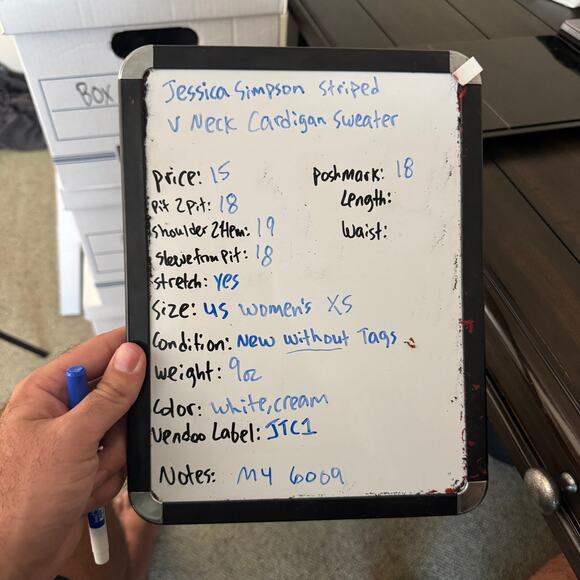 BOX
Jessica Simpson Striped
V Neck Cardigan Sweater
Price: 15
Poshmark: 18
Pit 2 Pit: 18
Length:
Shoulder 2 Hem: 19
Waist:
Sleeve from Pit: 18
Stretch: yes
Size: US Women's XS
Condition: New without Tags
Weight: 9oz
Color: White, cream
Vendoo Label: JTC1
Notes: MY 6009